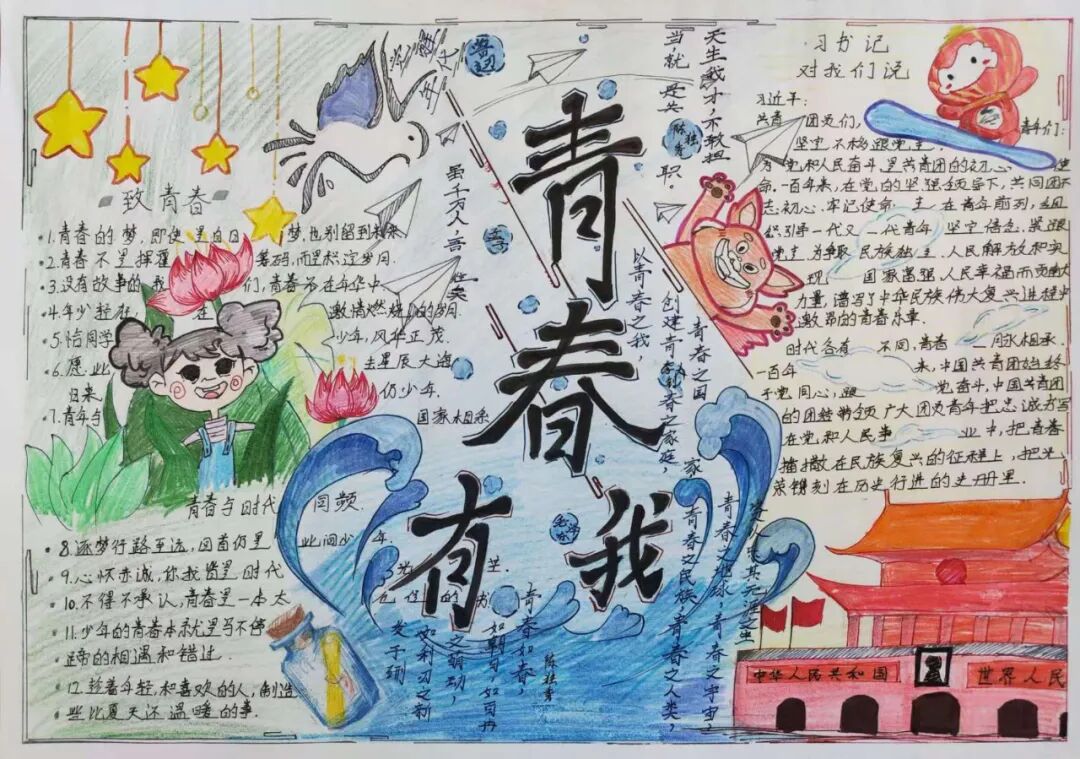 青春
有我
致青春
1.青春的梦,即使是白日 梦,也别留到未来
2.青春不是挥霍 筹码,而是积淀岁月.
3.没有故事的我 们,青春
4.年少轻狂, 在 激情燃烧 的岁月.
5.恰同学 少年,风华正茂.
6.愿 此 去星辰大海
归来 仍少年.
7.青年与 国家相系
青春与时代 同频.
8.逐梦行路 远,回首仍是 此间少年.
9.心怀赤诚,你我皆是时代
10.不得不承认,青春是一本太
11.少年的青春本就是马不停
蹄的相遇和错过.
12.趁着年轻,和喜欢的人,制造
些比夏天还温暖的事.
虽千万人,吾往矣
天生我才,不敢担
当,就是失职.
陈独秀
以青春之我,
创建青春之家庭,
青春之国家,
青春之民族,青春之人类,
青春之地球,青春之宇宙,
青春如春,
如朝日,如百卉
之萌动,
如利刃之新
发于硎
陈独秀
习书记
对我们说
习近平:
共青团员们, 青年们:
坚定不移跟党走
为党和人民奋斗是共青团的初心 使
命.一百年来,在党的坚强领导下,共青团不
忘初心、牢记使命, 走在青年前列,组
织引导一代又一代青年坚定信念、紧跟
党走,为争取民族独立、人民解放和实
现 国家富强、人民幸福而贡献
力量,谱写了中华民族伟大复兴进程中
激昂的青春乐章.
时代各有不同,青春一脉相承.
一百年 来,中国共青团始终
于党同心,跟党奋斗,中国共青团
的团结带领广大团员青年把忠诚书写
在党和人民事业中,把青春
播撒在民族复兴的征程上,把光
荣镌刻在历史行进的史册里.
中华人民共和国
世界人民